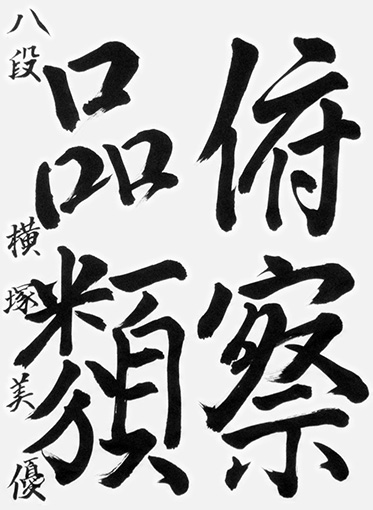 俯察
品類
八段 横塚美優